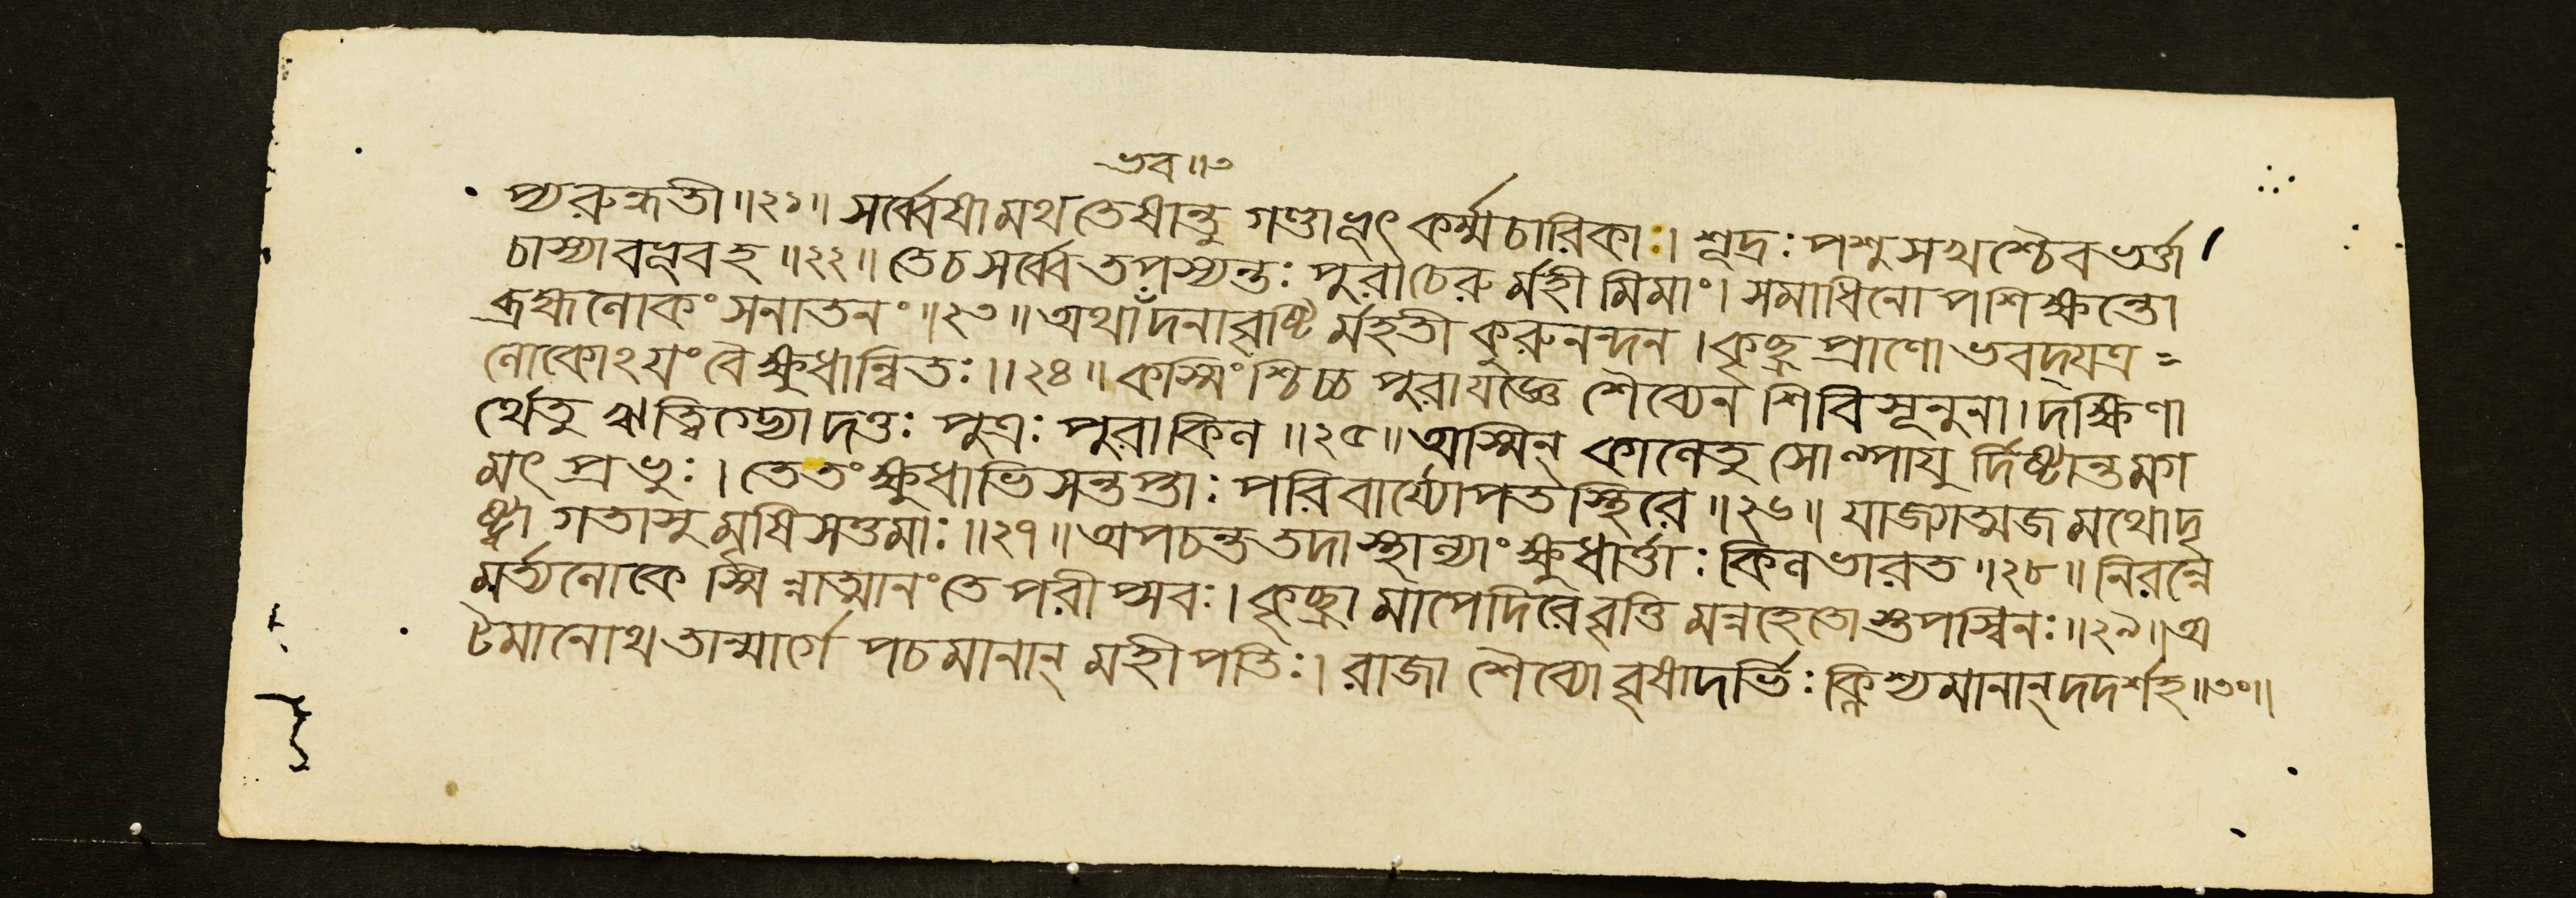 ভব॥৩
প্যরুন্ধতী॥২১॥ সর্ব্বেষামথ তেষান্তু গণ্ডাভূৎ কর্ম্মচারিকাঃ। শূদ্রঃ পশুসখশ্চৈব ভর্ত্তা
চাস্যাবভূবহ॥২২॥ তেচসর্ব্বে তপস্যন্তঃ পুরাচেরুর্মহীমিমাং। সমাধিনোপশিক্ষন্তো
ব্রহ্মলোকং সনাতনং॥২৩॥ অথাঁদনাবৃষ্টির্মহতী কুরুনন্দন। কৃচ্ছ্রপ্রাণোভবদ্যত্র=
লোকোঽয়ংবৈক্ষুধান্বিতঃ॥২৪॥ কস্মিংশ্চিচ্চ পুরাযজ্ঞে শৈব্যেন শিবিসূনুনা। দক্ষিণা
র্থেতু ঋত্বিগ্ভ্যোদত্তঃ পুত্রঃ পুরাকিল॥২৫॥ অস্মিন্ কালেতু সোল্পাযুর্দিষ্টান্তমগ
মৎ প্রভুঃ। তেতংক্ষুধাভিসন্তপ্তাঃ পরিবার্য্যোপতস্থিরে॥২৬॥ যাজ্যাত্মজমথোদৃ
ষ্ট্বা গতাসুমৃষিসত্তমাঃ॥২৭॥ অপচন্ততদাস্থাল্যাং ক্ষুধার্ত্তাঃ কিলভারত॥২৮॥ নিরন্নে
মর্ত্যলোকেস্মিন্নাত্মানংতেপরীপ্সবঃ। কৃচ্ছ্রামাপেদিরেবৃত্তিমন্নহেতোস্তপস্বিনঃ॥২৯॥ অ
টমানোথতান্মার্গে পচমানান্ মহীপতিঃ। রাজা শৈব্যোবৃষাদর্ভিঃ ক্লিশ্যমানান্দদর্শহ॥৩০॥